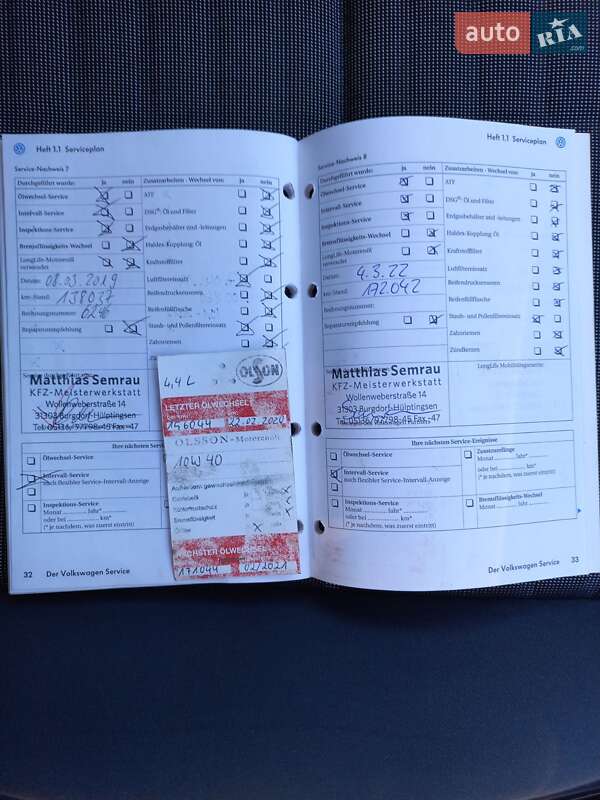 auto RIA.com
Heft 1.1 Serviceplan
Service-Nachweis 7
Durchgeführt wurde: ja nein Zusatzarbeiten - Wechsel von: ja nein
Ölwechsel-Service ATF
Intervall-Service DSG® Öl und Filter
Inspektions-Service Erdgasbehälter und -leitungen
Bremsflüssigkeits-Wechsel Haldex-Kupplung Öl
LongLife-Motorenöl verwendet Kraftstofffilter
Datum: 08.03.2019 Luftfiltereinsatz
km-Stand: 138037 Reifendrucksensoren
Rechnungsnummer: 6246 Reifenfüllflasche
Reparaturempfehlung Staub- und Pollenfiltereinsatz
Zahnriemen
Zündkerzen
Matthias Semrau
KFZ-Meisterwerkstatt
Wollenweberstraße 14
31303 Burgdorf-Hülptingsen
Tel. 05136/97798-45 Fax -47
Ihre nächsten Service
Ölwechsel-Service
Intervall-Service
nach flexibler Service-Intervall-Anzeige
Inspektions-Service
Monat Jahr*
oder bei km*
(* je nachdem, was zuerst eintritt)
32 Der Volkswagen Service
4,4 L
OLSSON
LETZTER ÖLWECHSEL
156044 22.02.2020
OLSSON-Motorenöl
10W40
Bremsflüssigkeit
NÄCHSTER ÖLWECHSEL
171044 02/2021
Heft 1.1 Serviceplan
Service-Nachweis 8
Durchgeführt wurde: ja nein Zusatzarbeiten - Wechsel von: ja nein
Ölwechsel-Service ATF
Intervall-Service DSG® Öl und Filter
Inspektions-Service Erdgasbehälter und -leitungen
Bremsflüssigkeits-Wechsel Haldex-Kupplung Öl
LongLife-Motorenöl verwendet Kraftstofffilter
Datum: 4.3.22 Luftfiltereinsatz
km-Stand: 172042 Reifendrucksensoren
Rechnungsnummer: Reifenfüllflasche
Reparaturempfehlung Staub- und Pollenfiltereinsatz
Zahnriemen
Zündkerzen
LongLife Mobilitätsgarantie:
Matthias Semrau
KFZ-Meisterwerkstatt
Wollenweberstraße 14
31303 Burgdorf-Hülptingsen
Tel. 05136/97798-45 Fax -47
Ihre nächsten Service-Ereignisse
Ölwechsel-Service
Intervall-Service
nach flexibler Service-Intervall-Anzeige
Inspektions-Service
Monat Jahr*
oder bei km*
(* je nachdem, was zuerst eintritt)
Zusatzumfänge
Monat Jahr*
oder bei km*
(* je nachdem, was zuerst eintritt)
Bremsflüssigkeits-Wechsel
Monat Jahr
Der Volkswagen Service 33